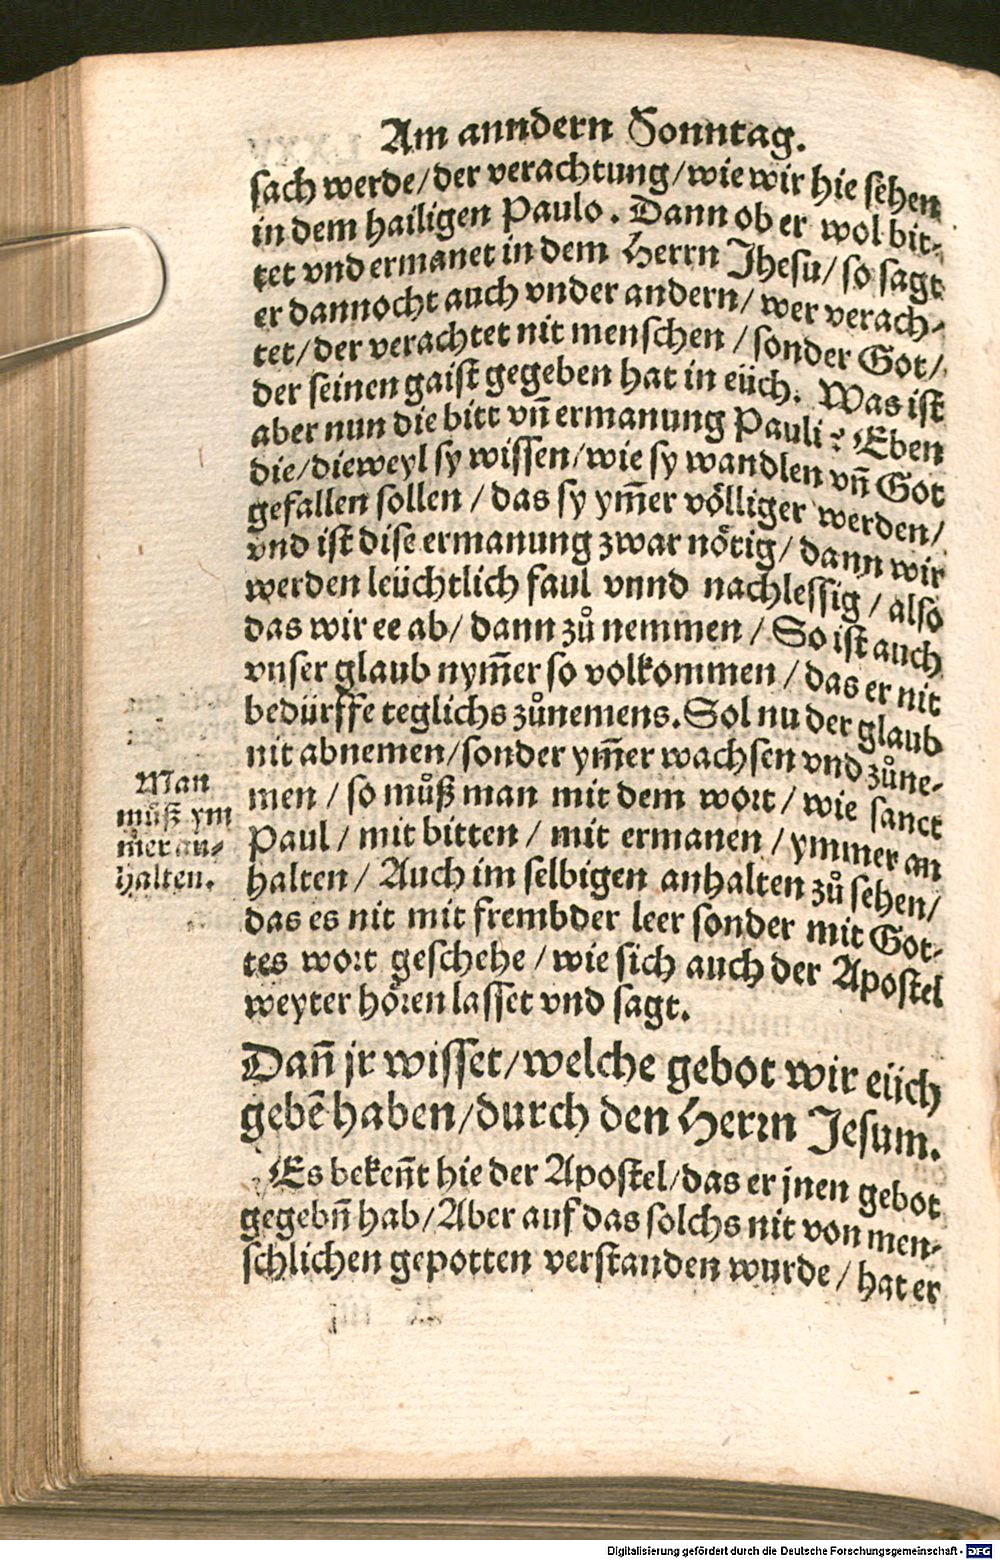 Am anndern Sonntag.
sach werde/der verachtung/wie wir hie sehen
in dem hailigen Paulo. Dann ob er wol bit-
tet vnd ermanet in dem Herrn Jhesu/ so sagt
er dannocht auch vnder andern/ wer verach-
tet/der verachtet nit menschen /sonder Got/
der seinen gaist gegeben hat in eüch. Was ist
aber nun die bitt vñ ermanung Pauli? Eben
die/dieweyl sy wissen/wie sy wandlen vñ Got
gefallen sollen /das sy ym̃er völliger werden/
vnd ist dise ermanung zwar nötig/ dann wir
werden leüchtlich faul vnnd nachlessig /also
das wir ee ab/ dann zůnemmen /So ist auch
vnser glaub nym̃er so volkommen /das er nit
bedürffe teglichs zůnemens. Sol nu der glaub
nit abnemen/sonder ym̃er wachsen vnd zůne-
men /so můß man mit dem wort/ wie sanct
Paul/ mit bitten/ mit ermanen /ymmer an
halten/ Auch im selbigen anhalten zů sehen/
das es nit mit frembder leer sonder mit Got-
tes wort geschehe /wie sich auch der Apostel
weyter hören lasset vnd sagt.
Man
můß ym
m̃er an-
halten.
Dañ jr wisset/welche gebot wir eüch
gebẽ haben/durch den Herrn Jesum.
Es bekeñt hie der Apostel/das er jnen gebot
gegebñ hab/Aber auf das solchs nit von men-
schlichen gepotten verstanden wurde/ hat er
Digitalisierung gefördert durch die Deutsche Forschungsgemeinschaft - DFG